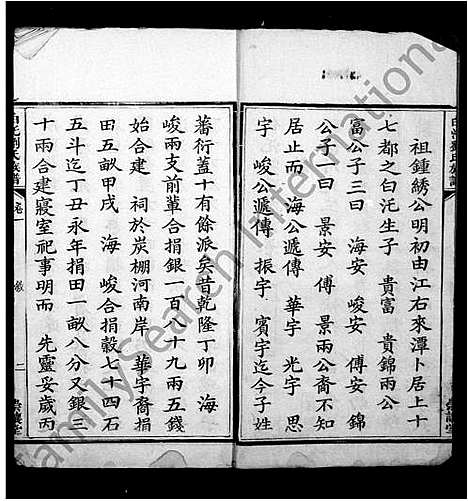 祖鍾綉公明初由江右來潭卜居上十
七都之白沱生子 貴富 貴錦兩公
富公子三曰 海安 峻安 傅安 錦
公子一曰 景安 傅 景兩公裔不知
居止而 海公遞傳 華宇 光宇 思
宇 峻公遞傳 振宇 賓宇迄今子姓
白沱劉氏族譜 卷一 二
蕃衍蓋十有餘派矣昔乾隆丁卯 海
峻兩支前輩合捐銀一百八十九兩五錢
始合建 祠於炭棚河南岸 華宇裔捐
田五畝甲戌 海 峻合捐穀七十四石
五斗迄丁丑永年捐田一畝八分又銀三
十兩合建寢室祀事明而 先靈妥歲丙
FamilySearch International